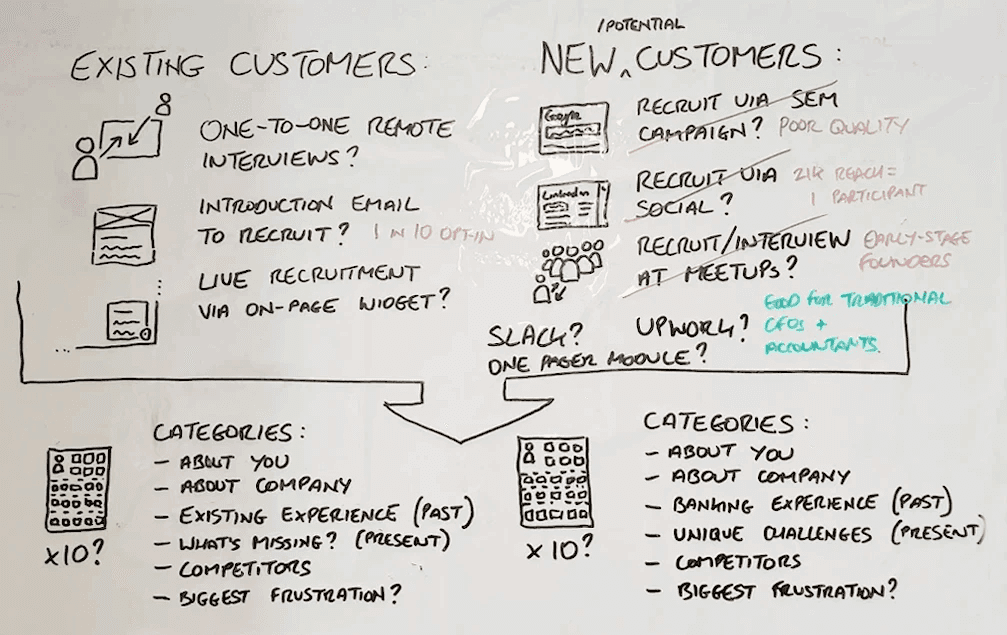 EXISTING CUSTOMERS:
ONE-TO-ONE REMOTE
INTERVIEWS?
INTRODUCTION EMAIL
TO RECRUIT? 1 IN 10 OPT-IN
LIVE RECRUITMENT
VIA ON-PAGE WIDGET?
/POTENTIAL
NEW ^ CUSTOMERS:
Google
RECRUIT VIA SEM
CAMPAIGN? POOR QUALITY
LinkedIn
RECRUIT VIA 21K REACH =
SOCIAL? 1 PARTICIPANT
RECRUIT/INTERVIEW EARLY-STAGE
AT MEETUPS? FOUNDERS
SLACK? UPWORK? GOOD FOR TRADITIONAL
CFOS +
ONE PAGER MODULE? ACCOUNTANTS.
CATEGORIES:
- ABOUT YOU
- ABOUT COMPANY
- EXISTING EXPERIENCE (PAST)
- WHAT'S MISSING? (PRESENT)
- COMPETITORS
- BIGGEST FRUSTRATION?
x10?
CATEGORIES:
- ABOUT YOU
- ABOUT COMPANY
- BANKING EXPERIENCE (PAST)
- UNIQUE CHALLENGES (PRESENT)
- COMPETITORS
- BIGGEST FRUSTRATION?
x10?